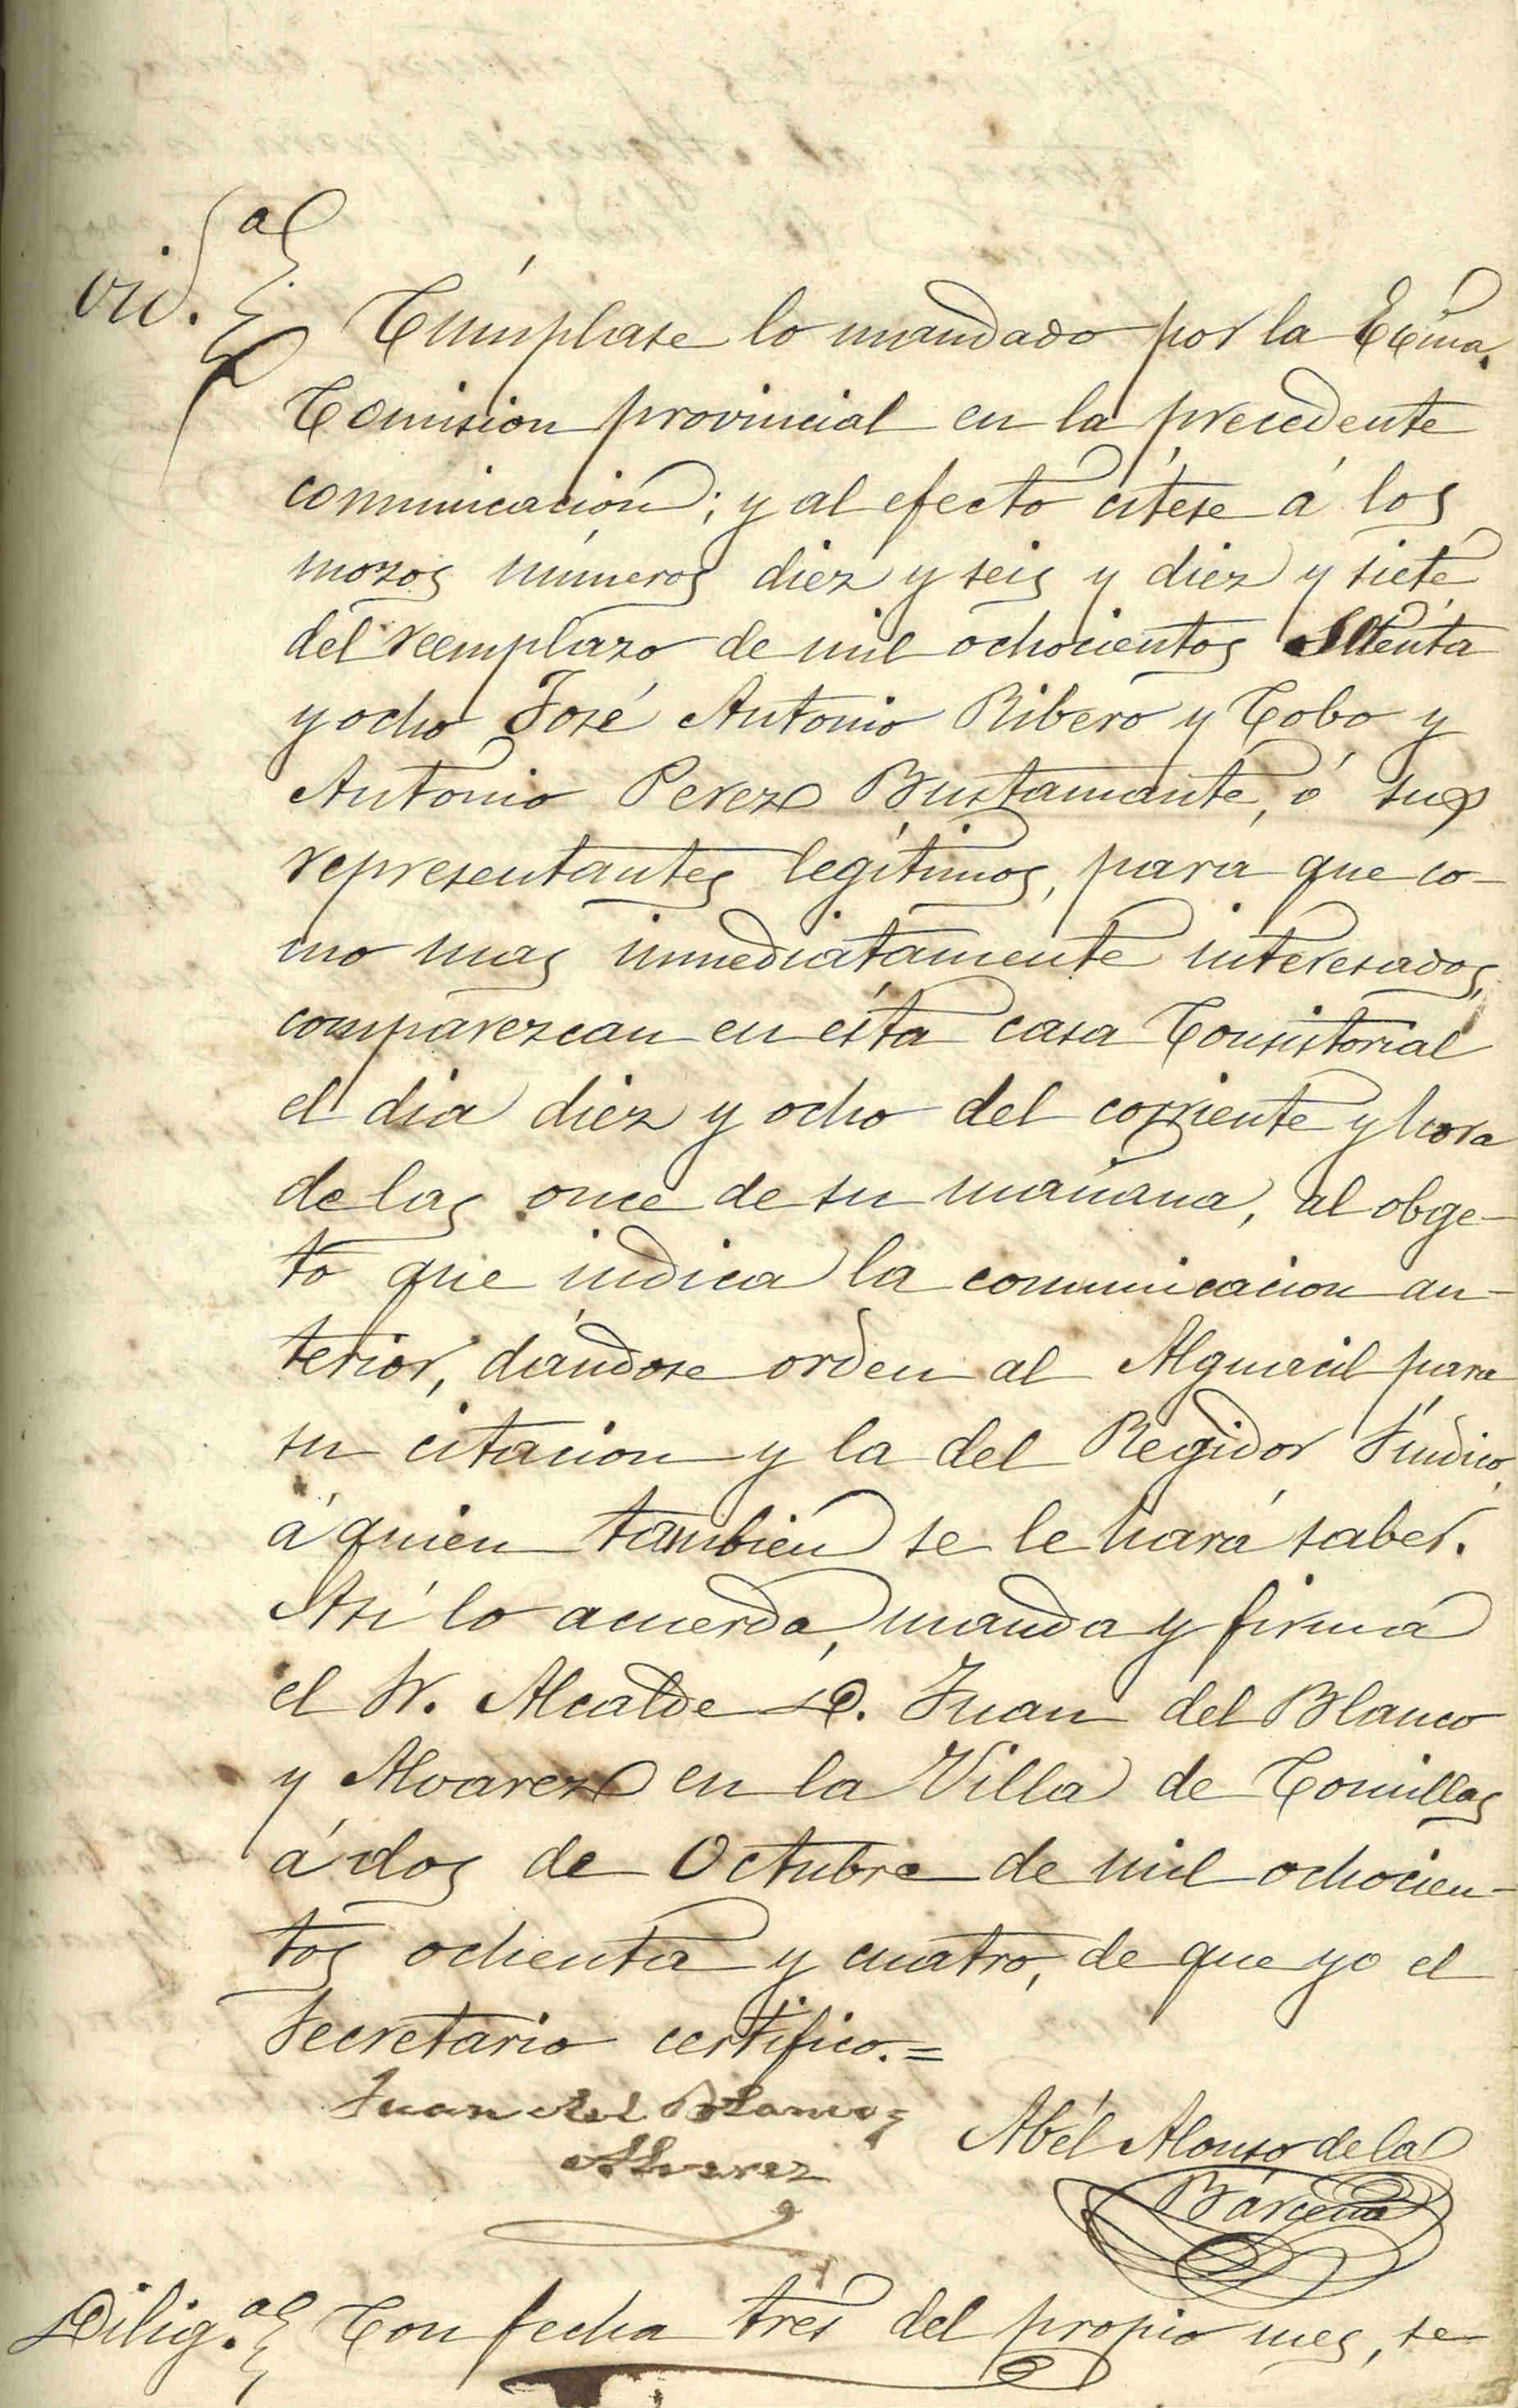 vid.ª
Cúmplase lo mandado por la Exc̃ma.
Comision provincial en la precedente
comunicación; y al efecto cítese á los
mozos números diez y seis y diez y siete
del reemplazo de mil ochocientos setenta
y ocho José Antonio Ribero y Cobo y
Antonio Perez Bustamante, ó sus
representantes legítimos, para que co-
mo mas inmediatamente interesados,
comparezcan en ésta casa Consistorial
el dia diez y ocho del corriente y hora
de las once de su mañana, al obge-
to que indica la comunicacion an-
terior, dándose orden al Alguacil para
su citacion y la del Regidor Síndico,
á quien tambien se le hará saber.
Asi lo acuerda, manda y firma
el Sr. Alcalde D. Juan del Blanco
y Alvarez en la Villa de Comillas
á dos de Octubre de mil ochocien-
tos ochenta y cuatro, de que yo el
Secretario certifico.=
Juan del Blanco y
Alvarez
Abél Alonso de la
Bárcena
Dilig.ª Con fecha tres del propio mes, se